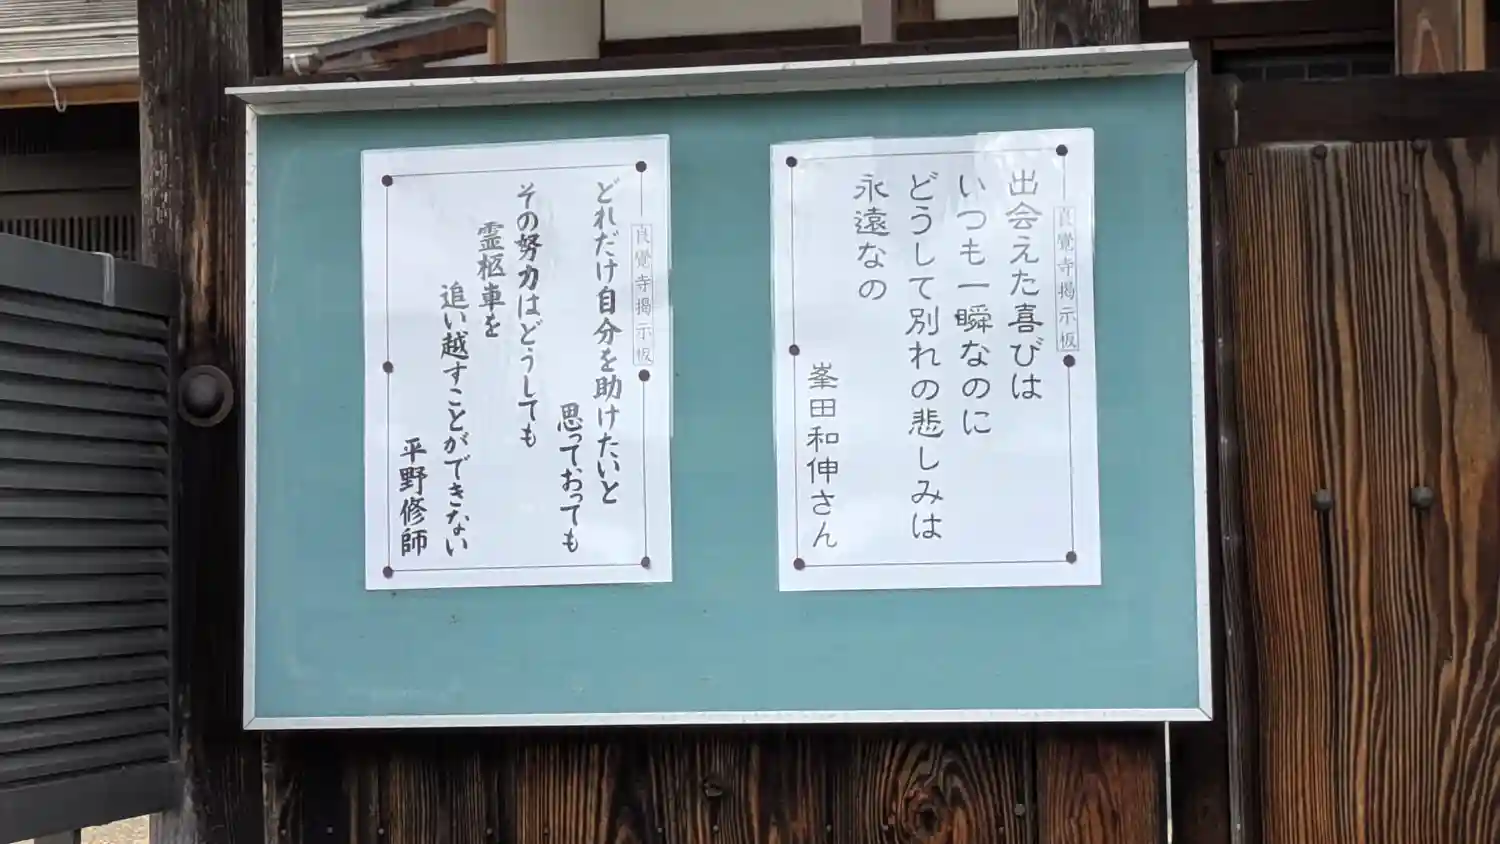 良覺寺掲示板
出会えた喜びは
いつも一瞬なのに
どうして別れの悲しみは
永遠なの
峯田和伸さん
良覺寺掲示板
どれだけ自分を助けたいと
思っておっても
その努力はどうしても
霊柩車を
追い越すことができない
平野修師